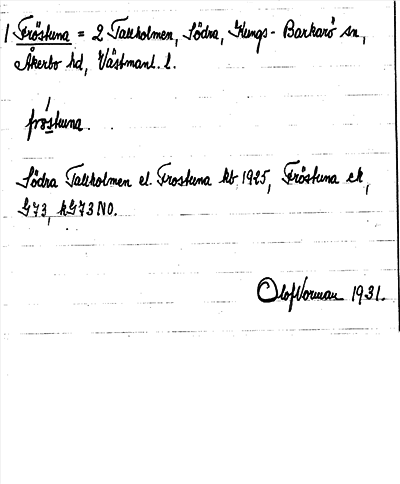 1 Fröstuna = 2 Tallholmen, Södra, Kungs-Barkarö sn,
Åkerbo hd, Västmanl. l.
fröstuna.
Södra Tallholmen el. Frostuna kb 1925, Fröstuna ek,
G73, hG73NO.
Olof Vorman 1931.